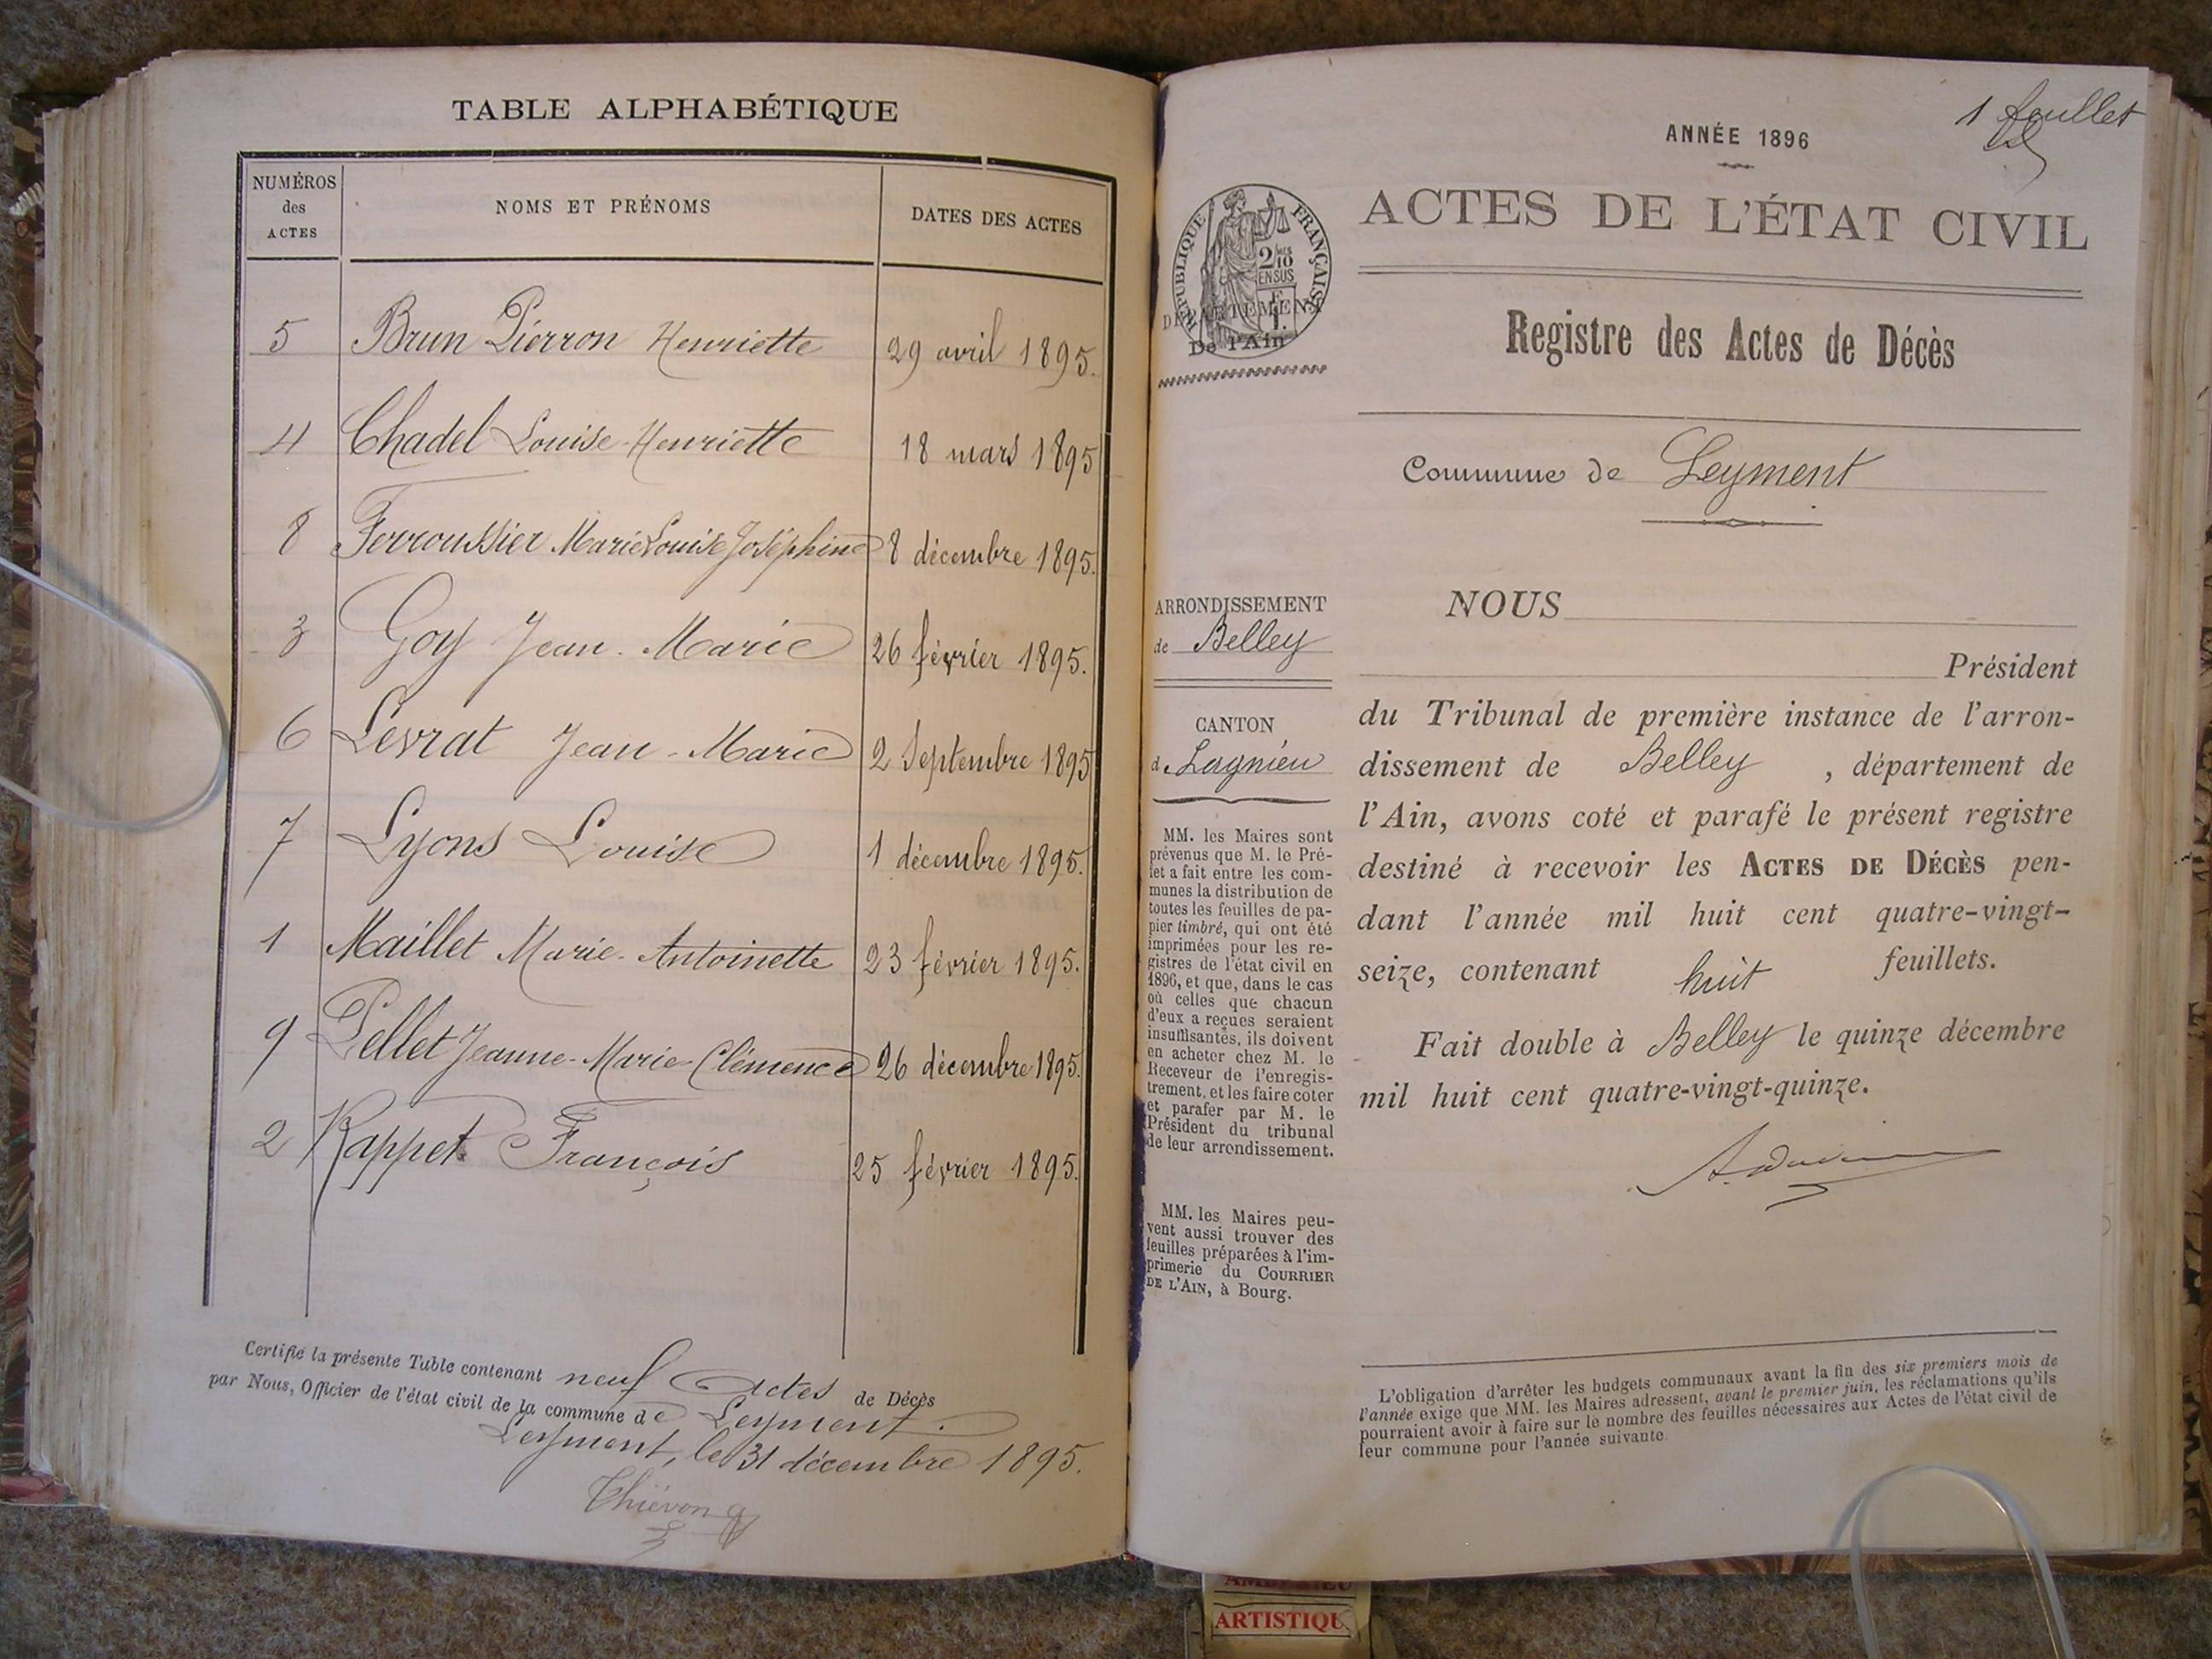 TABLE ALPHABÉTIQUE
NUMÉROS des ACTES
NOMS ET PRÉNOMS
DATES DES ACTES
5 Brun Pierron Henriette 29 avril 1895.
4 Chadel Louise-Henriette 18 mars 1895
8 Ferroussier Marie Louise Joséphine 8 décembre 1895.
3 Goy Jean-Marie 26 février 1895.
6 Levrat Jean-Marie 2 Septembre 1895
7 Lyons Louise 1 décembre 1895.
1 Maillet Marie-Antoinette 23 février 1895.
9 Pellet Jeanne-Marie-Clémence 26 décembre 1895.
2 Rappet François 25 février 1895.
Certifié la présente Table contenant neuf Actes de Décès
par Nous, Officier de l'état civil de la commune de Leyment.
Leyment, le 31 décembre 1895.
Thiévon
1 feuillet
ANNÉE 1896
RÉPUBLIQUE FRANÇAISE
2/10 EN SUS
DÉPARTEMENT
De l'Ain
ACTES DE L'ÉTAT CIVIL
Registre des Actes de Décès
Commune de Leyment
ARRONDISSEMENT
de Belley
CANTON
d Lagnieu
MM. les Maires sont
prévenus que M. le Pré-
fet a fait entre les com-
munes la distribution de
toutes les feuilles de pa-
pier timbré, qui ont été
imprimées pour les re-
gistres de l'état civil en
1896, et que, dans le cas
où celles que chacun
d'eux a reçues seraient
insuffisantes, ils doivent
en acheter chez M. le
Receveur de l'enregis-
trement, et les faire coter
et parafer par M. le
Président du tribunal
de leur arrondissement.
MM. les Maires peu-
vent aussi trouver des
feuilles préparées à l'im-
primerie du COURRIER
DE L'AIN, à Bourg.
NOUS
Président
du Tribunal de première instance de l'arron-
dissement de Belley , département de
l'Ain, avons coté et parafé le présent registre
destiné à recevoir les ACTES DE DÉCÈS pen-
dant l'année mil huit cent quatre-vingt-
seize, contenant huit feuillets.
Fait double à Belley le quinze décembre
mil huit cent quatre-vingt-quinze.
L'obligation d'arrêter les budgets communaux avant la fin des six premiers mois de
l'année exige que MM. les Maires adressent, avant le premier juin, les réclamations qu'ils
pourraient avoir à faire sur le nombre des feuilles nécessaires aux Actes de l'état civil de
leur commune pour l'année suivante.
ARTISTIQU